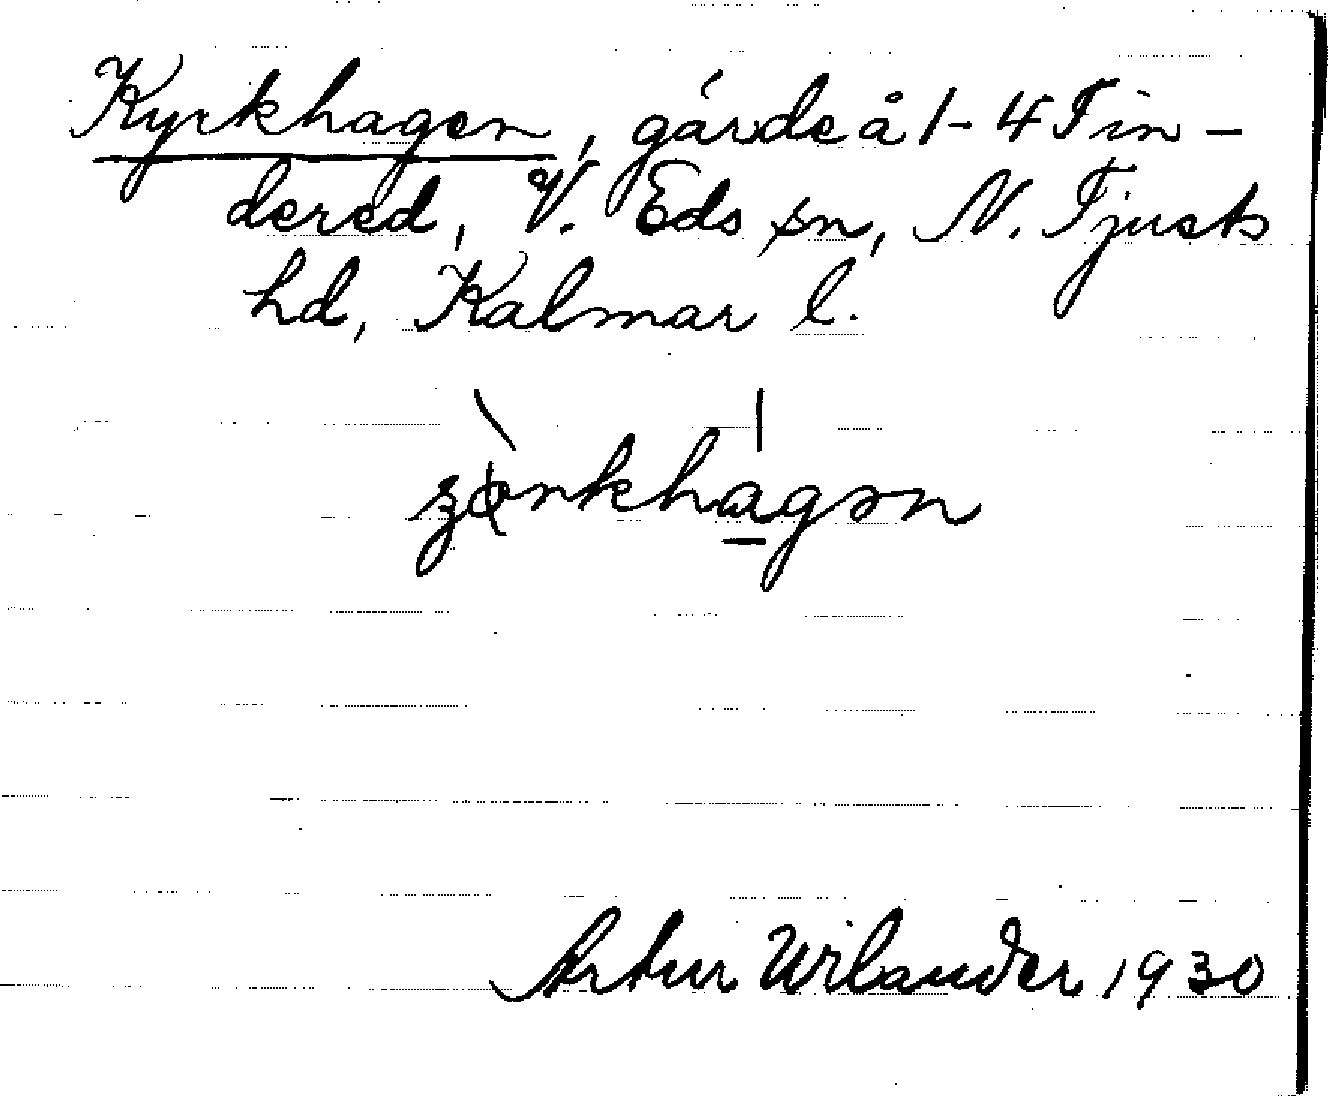 Kyrkhagen, gärde å 1-4 Tin-
dered, V. Eds sn, N. Tjusts
hd, Kalmar l.
Artur Wilander 1930